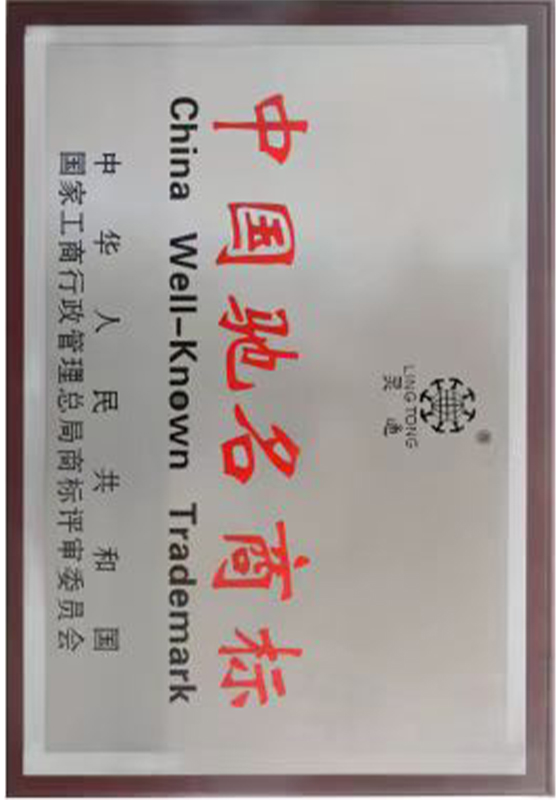 ®
LING TONG
灵通
中国驰名商标
China Well-Known Trademark
中华人民共和国
国家工商行政管理总局商标评审委员会